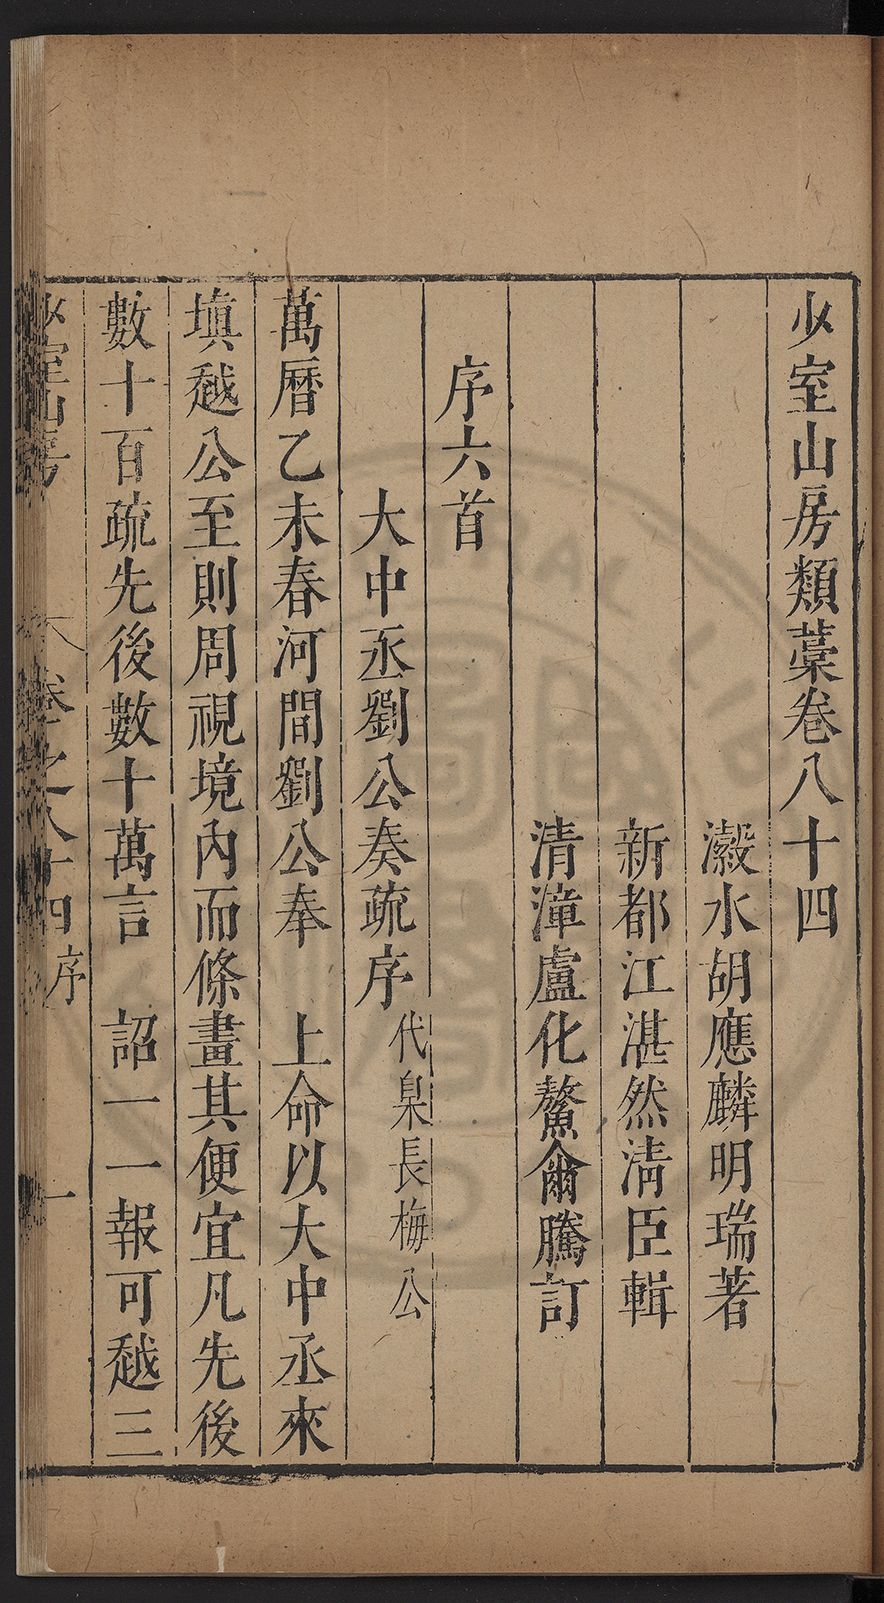 少室山房類藁卷八十四
瀫水胡應麟明瑞著
新都江湛然清臣輯
清漳盧化鰲爾騰訂
序六首
大中丞劉公奏疏序代臬長梅公
萬曆乙未春河間劉公奉 上命以大中丞來
填越公至則周視境內而條畫其便宜凡先後
數十百疏先後數十萬言 詔一一報可越三
少室山房 卷之八十四序 一